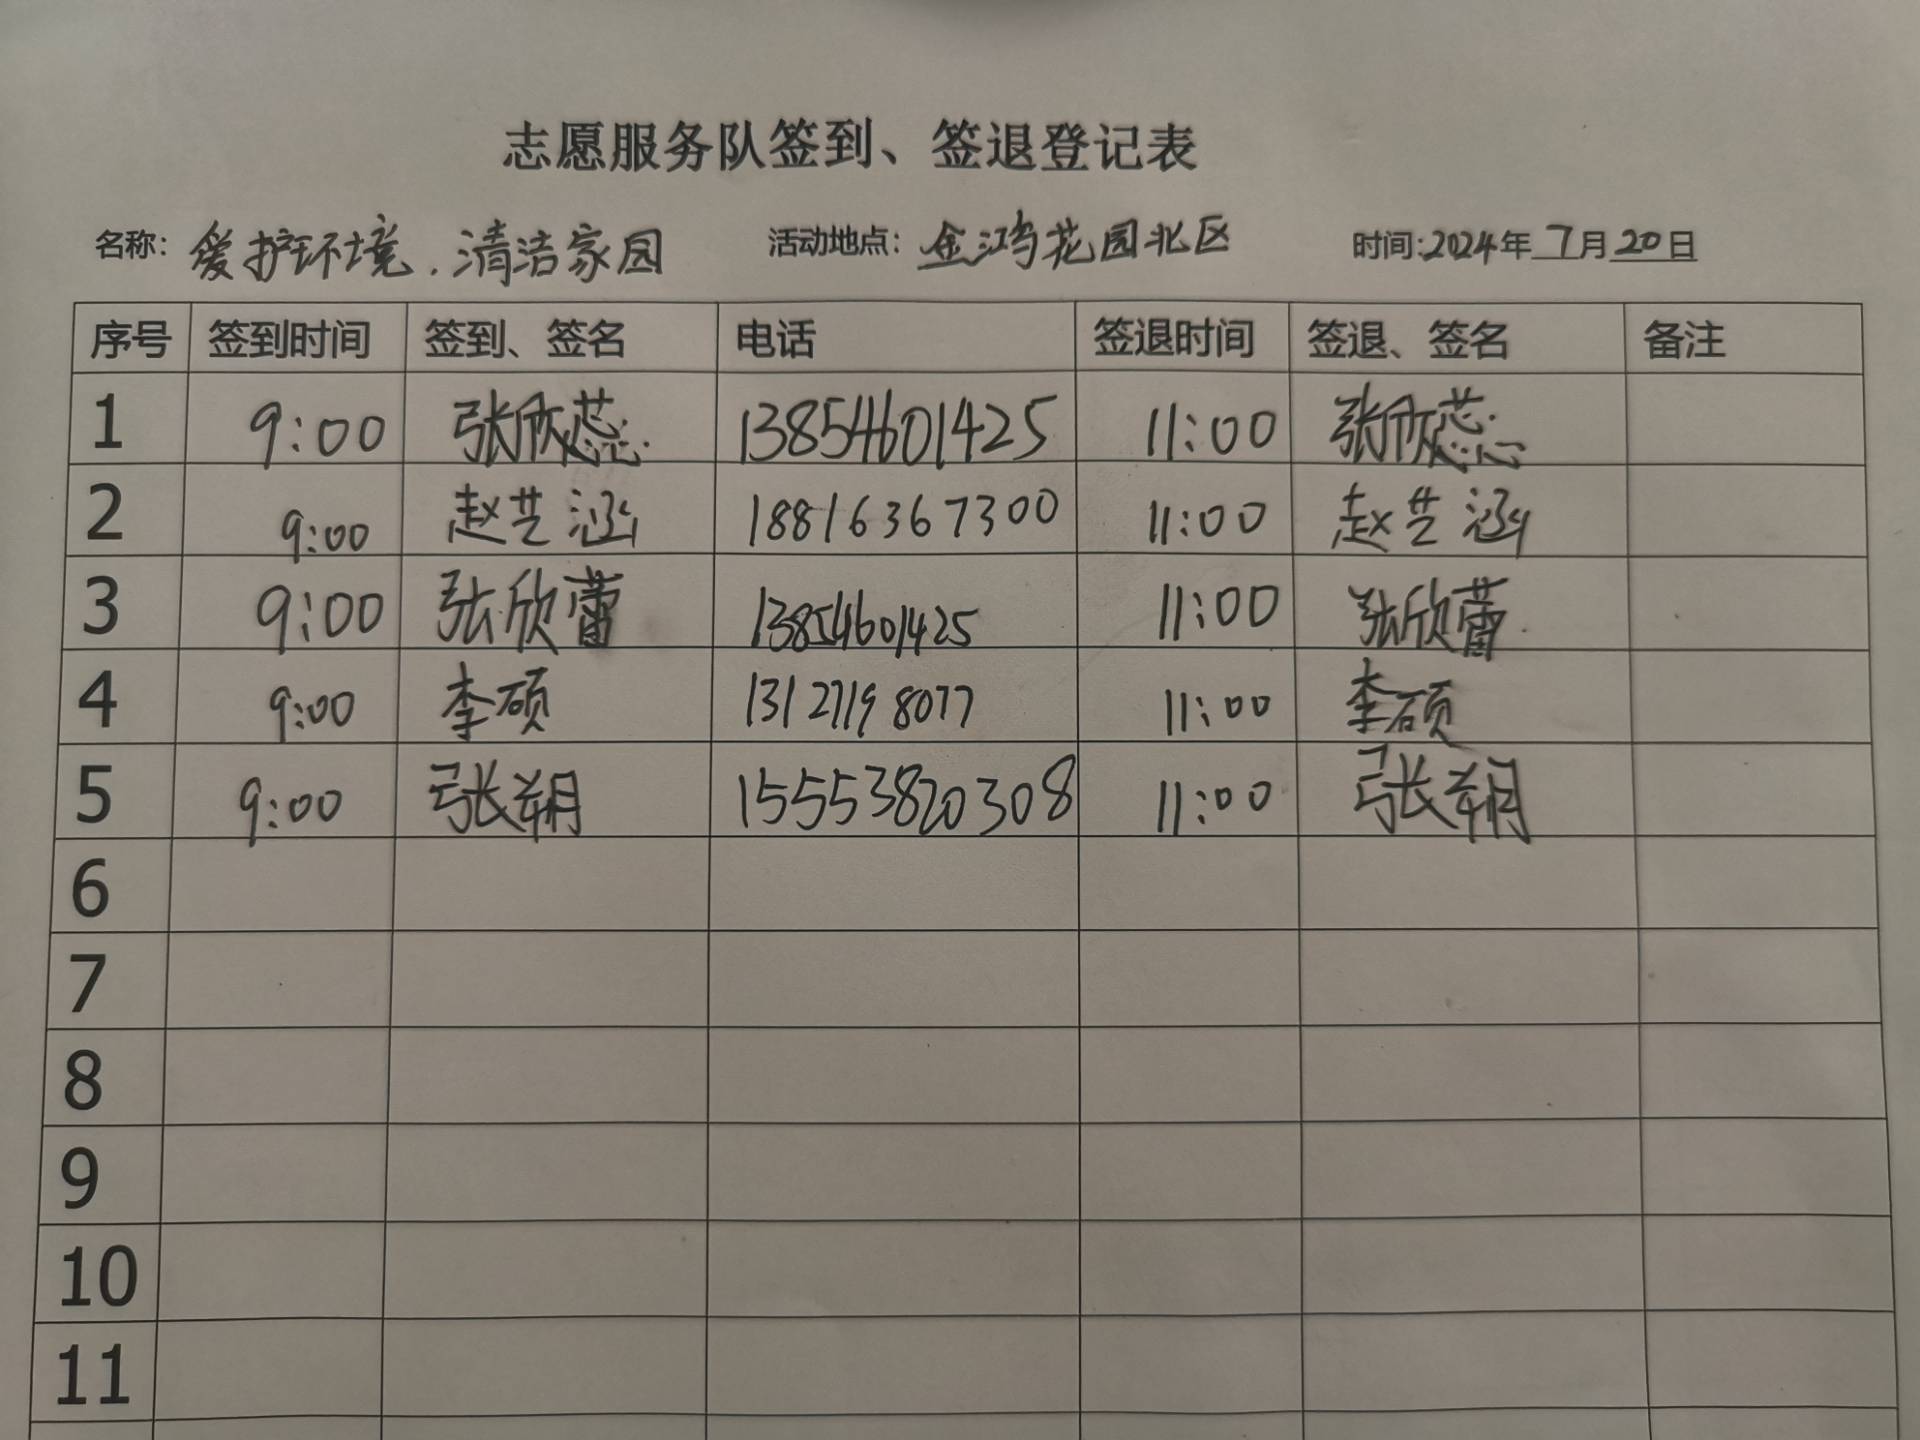 志愿服务队签到、签退登记表
名称：爱护环境.清洁家园 活动地点：金鸿花园北区 时间:2024年7月20日
序号 签到时间 签到、签名 电话 签退时间 签退、签名 备注
1 9:00 张欣蕊 13854601425 11:00 张欣蕊
2 9:00 赵艺涵 18816367300 11:00 赵艺涵
3 9:00 张欣蕾 13854601425 11:00 张欣蕾
4 9:00 李硕 13127198077 11:00 李硕
5 9:00 张朔 15553820308 11:00 张朔
6
7
8
9
10
11